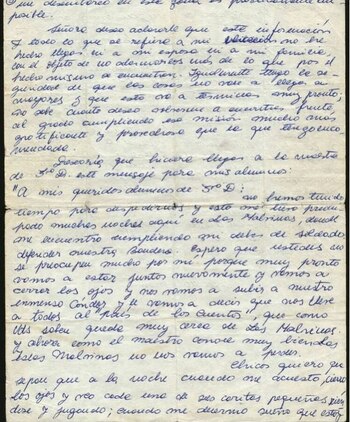 un desembarco en esta zona es prácticamente im
posible.
Señora deseo aclararle que esta información
y todo lo que se refiera a mi no he
hecho llegar ni a mi esposa ni a mi familia,
con el objeto de no alarmarlos más de lo que por el
hecho mismo se encuentran. Igualmente tengo la se-
guridad de que las cosas no van a llegar a
mayores y que esto va a terminar muy pronto;
no sabe cuanto deseo volverme a encontrar frente
al grado cumpliendo esa misión mucho más
gratificante y provechosa que la que tengo enco-
mendada.
Desearía que hiciera llegar a la maestra
de 3ro D. este mensaje para mis alumnos:
"A mis queridos alumnos de 3ro D:
no hemos tenido
tiempo para despedirnos y esto me tuvo preocu-
pado muchas noches aquí en las Malvinas donde
me encuentro cumpliendo mi labor de soldado
defender nuestra Bandera. Espero que ustedes no
se preocupen mucho por mi porque muy pronto
vamos a estar juntos nuevamente y vamos a
cerrar los ojos y nos vamos a subir a nuestro
inmenso Cóndor y le vamos a decir que nos lleve
a todos al país de los Cuentos, que como
Uds saben queda muy cerca de Las Malvinas.
y ahora como el maestro conoce muy bien las
Islas Malvinas no nos vamos a perder.
Chicos quiero que
sepan que a la noche cuando me acuesto, cierro
los ojos y veo cada una de sus caritas pequeñas, rien
dose y jugando; cuando me duermo sueño que estoy